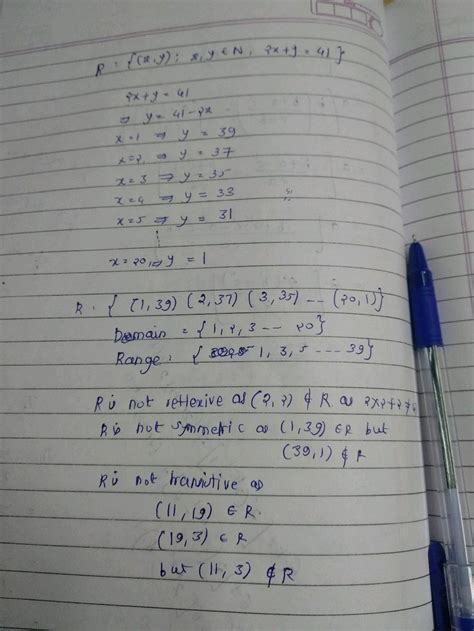 R = {(x,y): x,y ∈ N, 2x+y = 41}
2x+y = 41
⇒ y = 41-2x
x=1 ⇒ y = 39
x=2 ⇒ y = 37
x=3 ⇒ y = 35
x=4 ⇒ y = 33
x=5 ⇒ y = 31
⋮
x=20, ⇒ y = 1
R = { (1,39) (2,37) (3,35) --- (20,1)}
Domain = {1,2,3 --- 20}
Range = { 1, 3, 5 ---- 39}
R is not reflexive as (2,2) ∉ R as 2x2+2 ≠
R is not symmetric as (1,39) ∈R but
(39,1) ∉ R
R is not transitive as
(11,19) ∈ R
(19,3) ∈ R
but (11,3) ∉ R